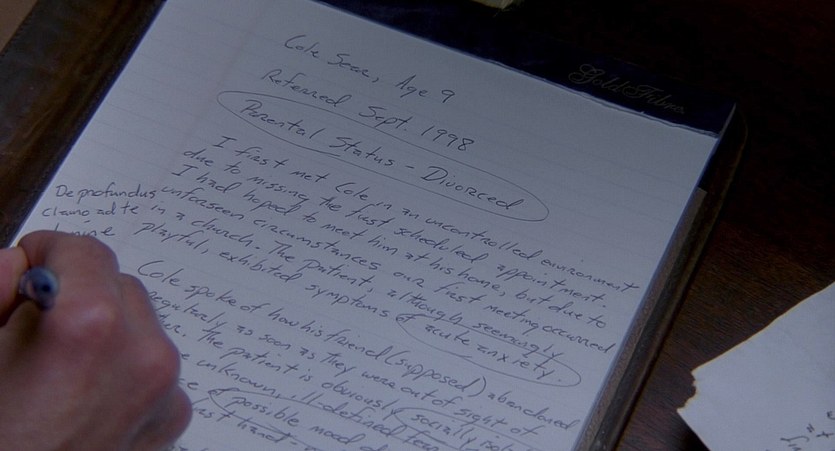 Gold Fibre
Cole Sear, Age 9
Referred Sept. 1998
Parental Status - Divorced
I first met Cole in an uncontrolled environment
due to missing the first scheduled appointment.
I had hoped to meet him at his home, but due to
unforseen circumstances our first meeting occurred
in a church. The patient, although seemingly
playful, exhibited symptoms of acute anxiety.
De profundus
clamo ad te
Cole spoke of how his friend (supposed) abandoned
regularly as soon as they were out of sight of
The patient is obviously socially
unknown, ill-defined
possible mood